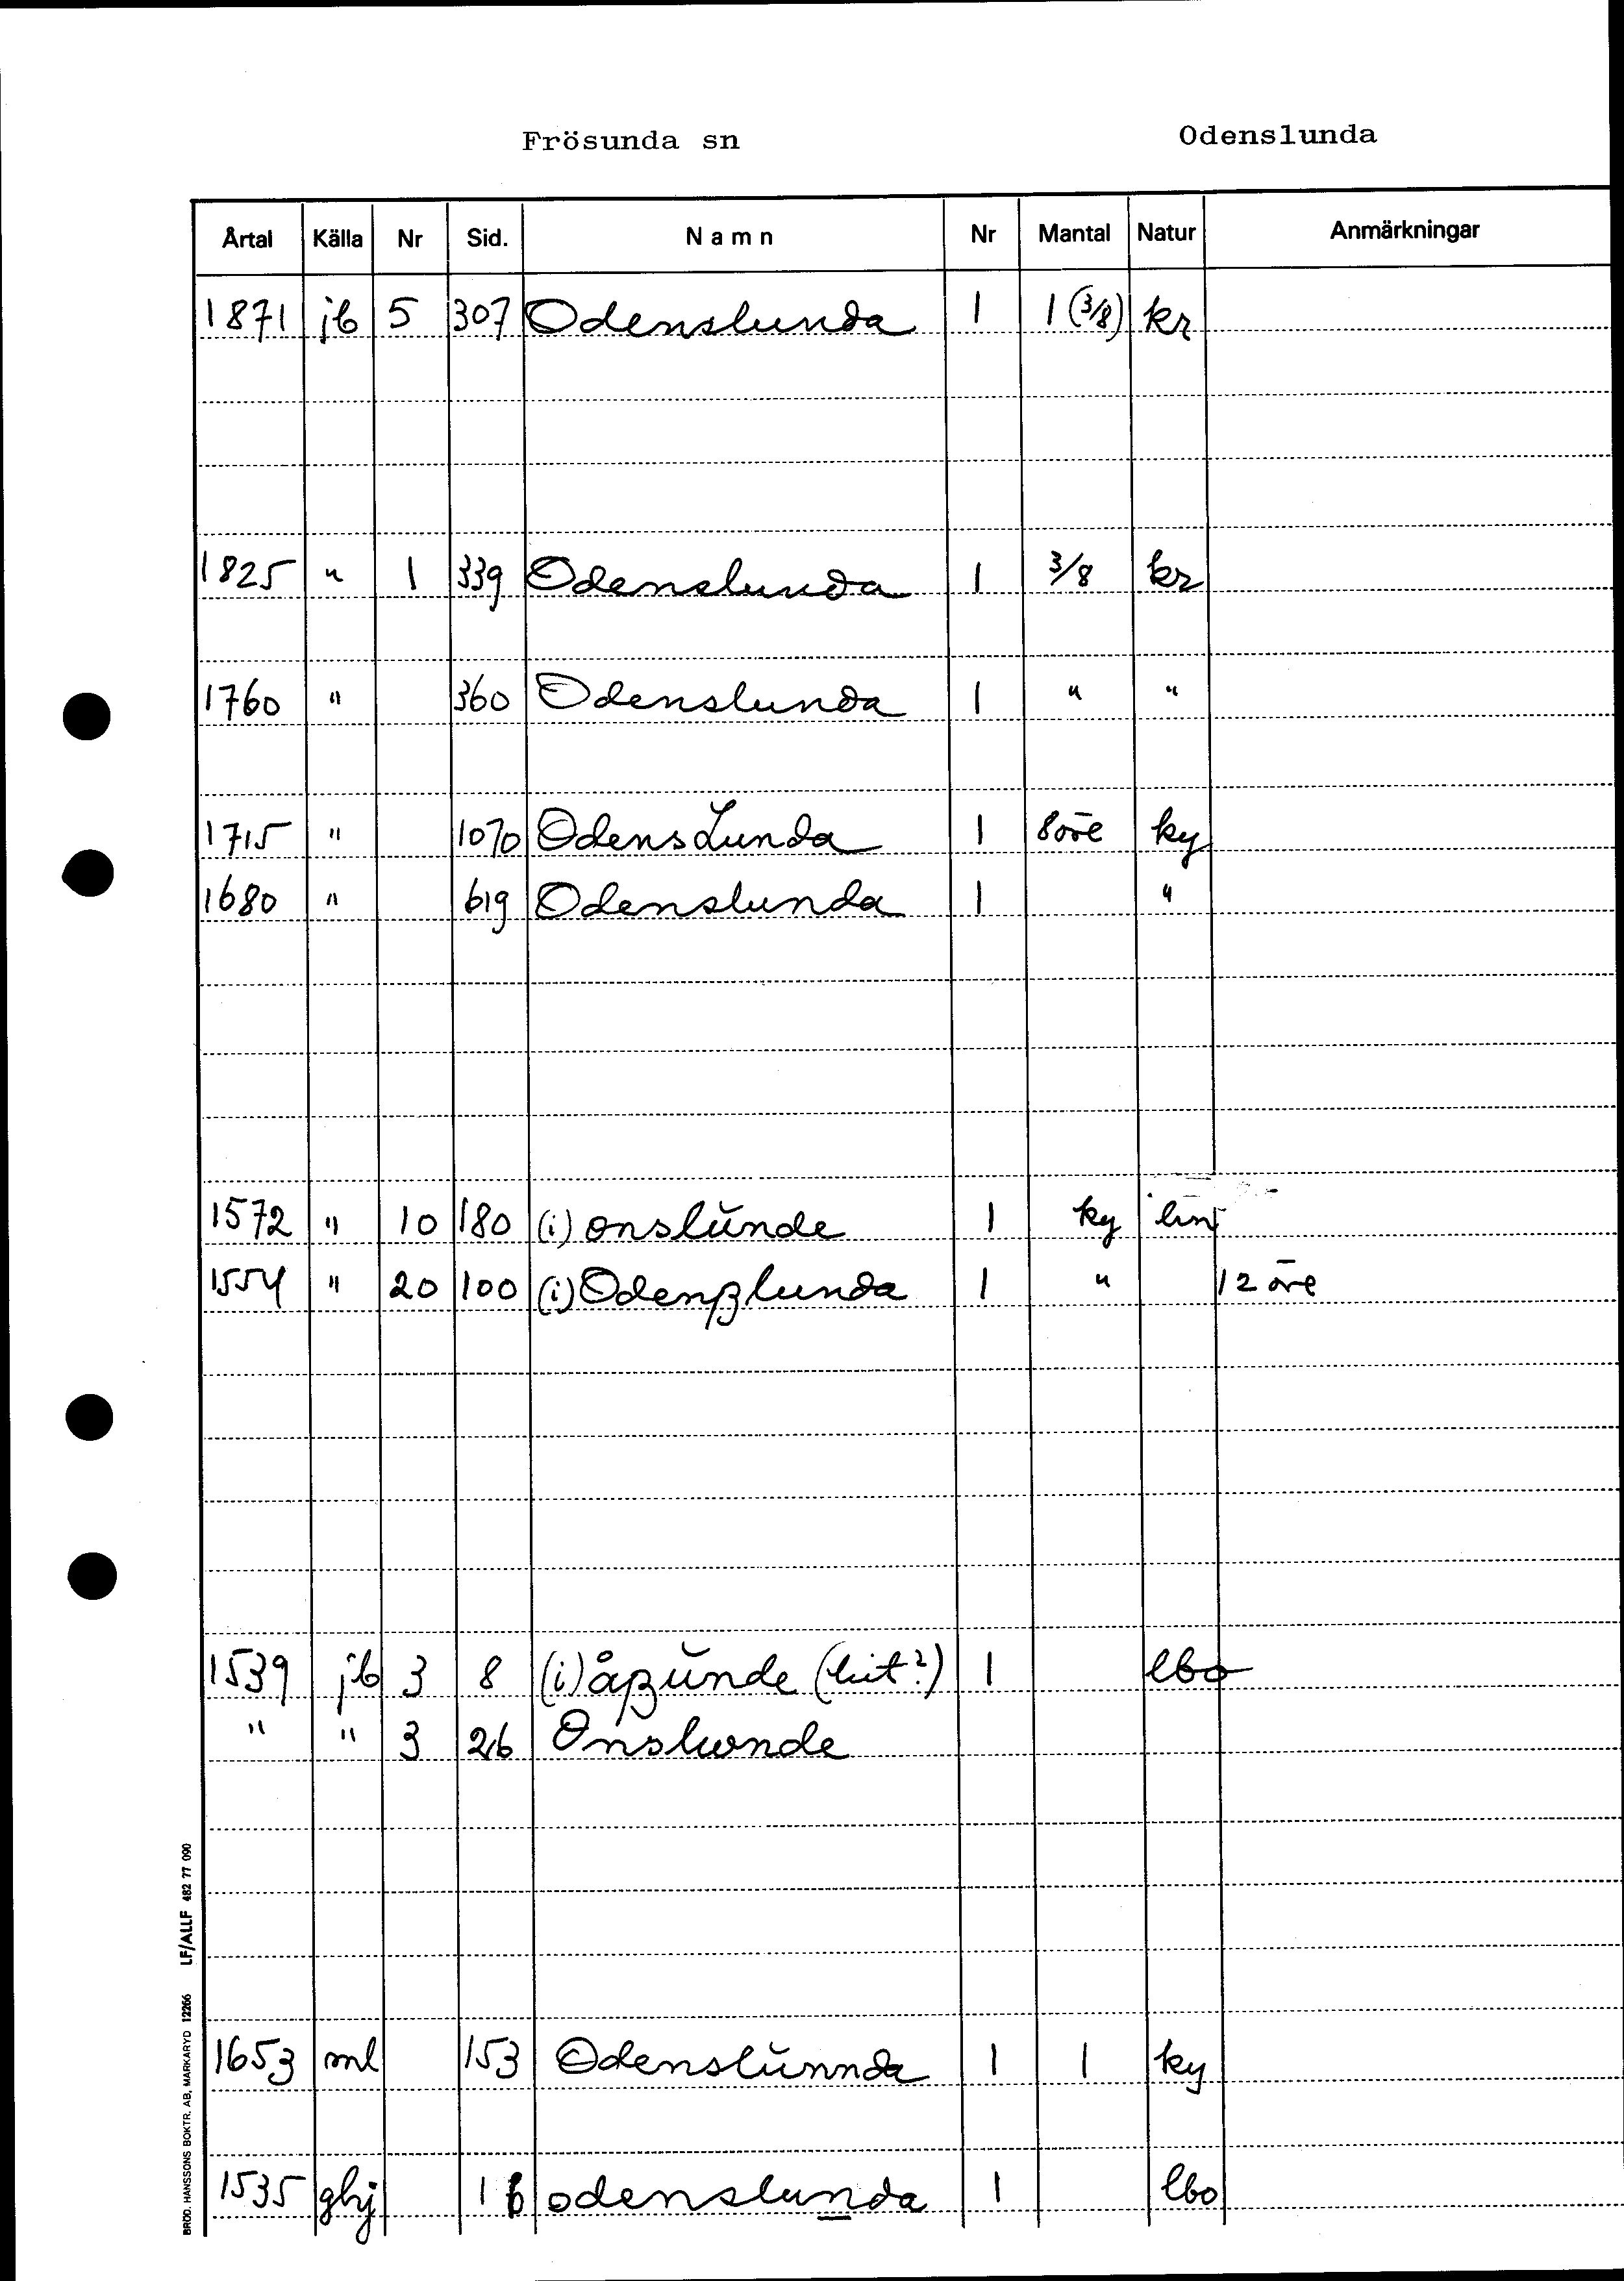 Frösunda sn Odenslunda
Årtal Källa Nr Sid. Namn Nr Mantal Natur Anmärkningar
1871 jb 5 307 Odenslunda 1 1 (3/8) kr
1825 " 1 339 Odenslunda 1 3/8 kr
1760 " 360 Odenslunda 1 " "
1715 " 1070 OdensLunda 1 8 öre ky
1680 " 619 Odenslunda 1 "
1572 " 10 180 (i) onslŭnde 1 ky
1554 " 20 100 (i) Odenßlunda 1 " 12 öre
1539 jb 3 8 (i) åßŭnde (hit?) 1 lbo
" " 3 26 Onslwnde
1653 ml 153 Odenslŭnnda 1 1 ky
1535 ghj 1 b odenslunda 1 lbo
BROD. HANSSONS BOKTR. AB, MARKARYD 12266 LF/ALLF 482 77 090